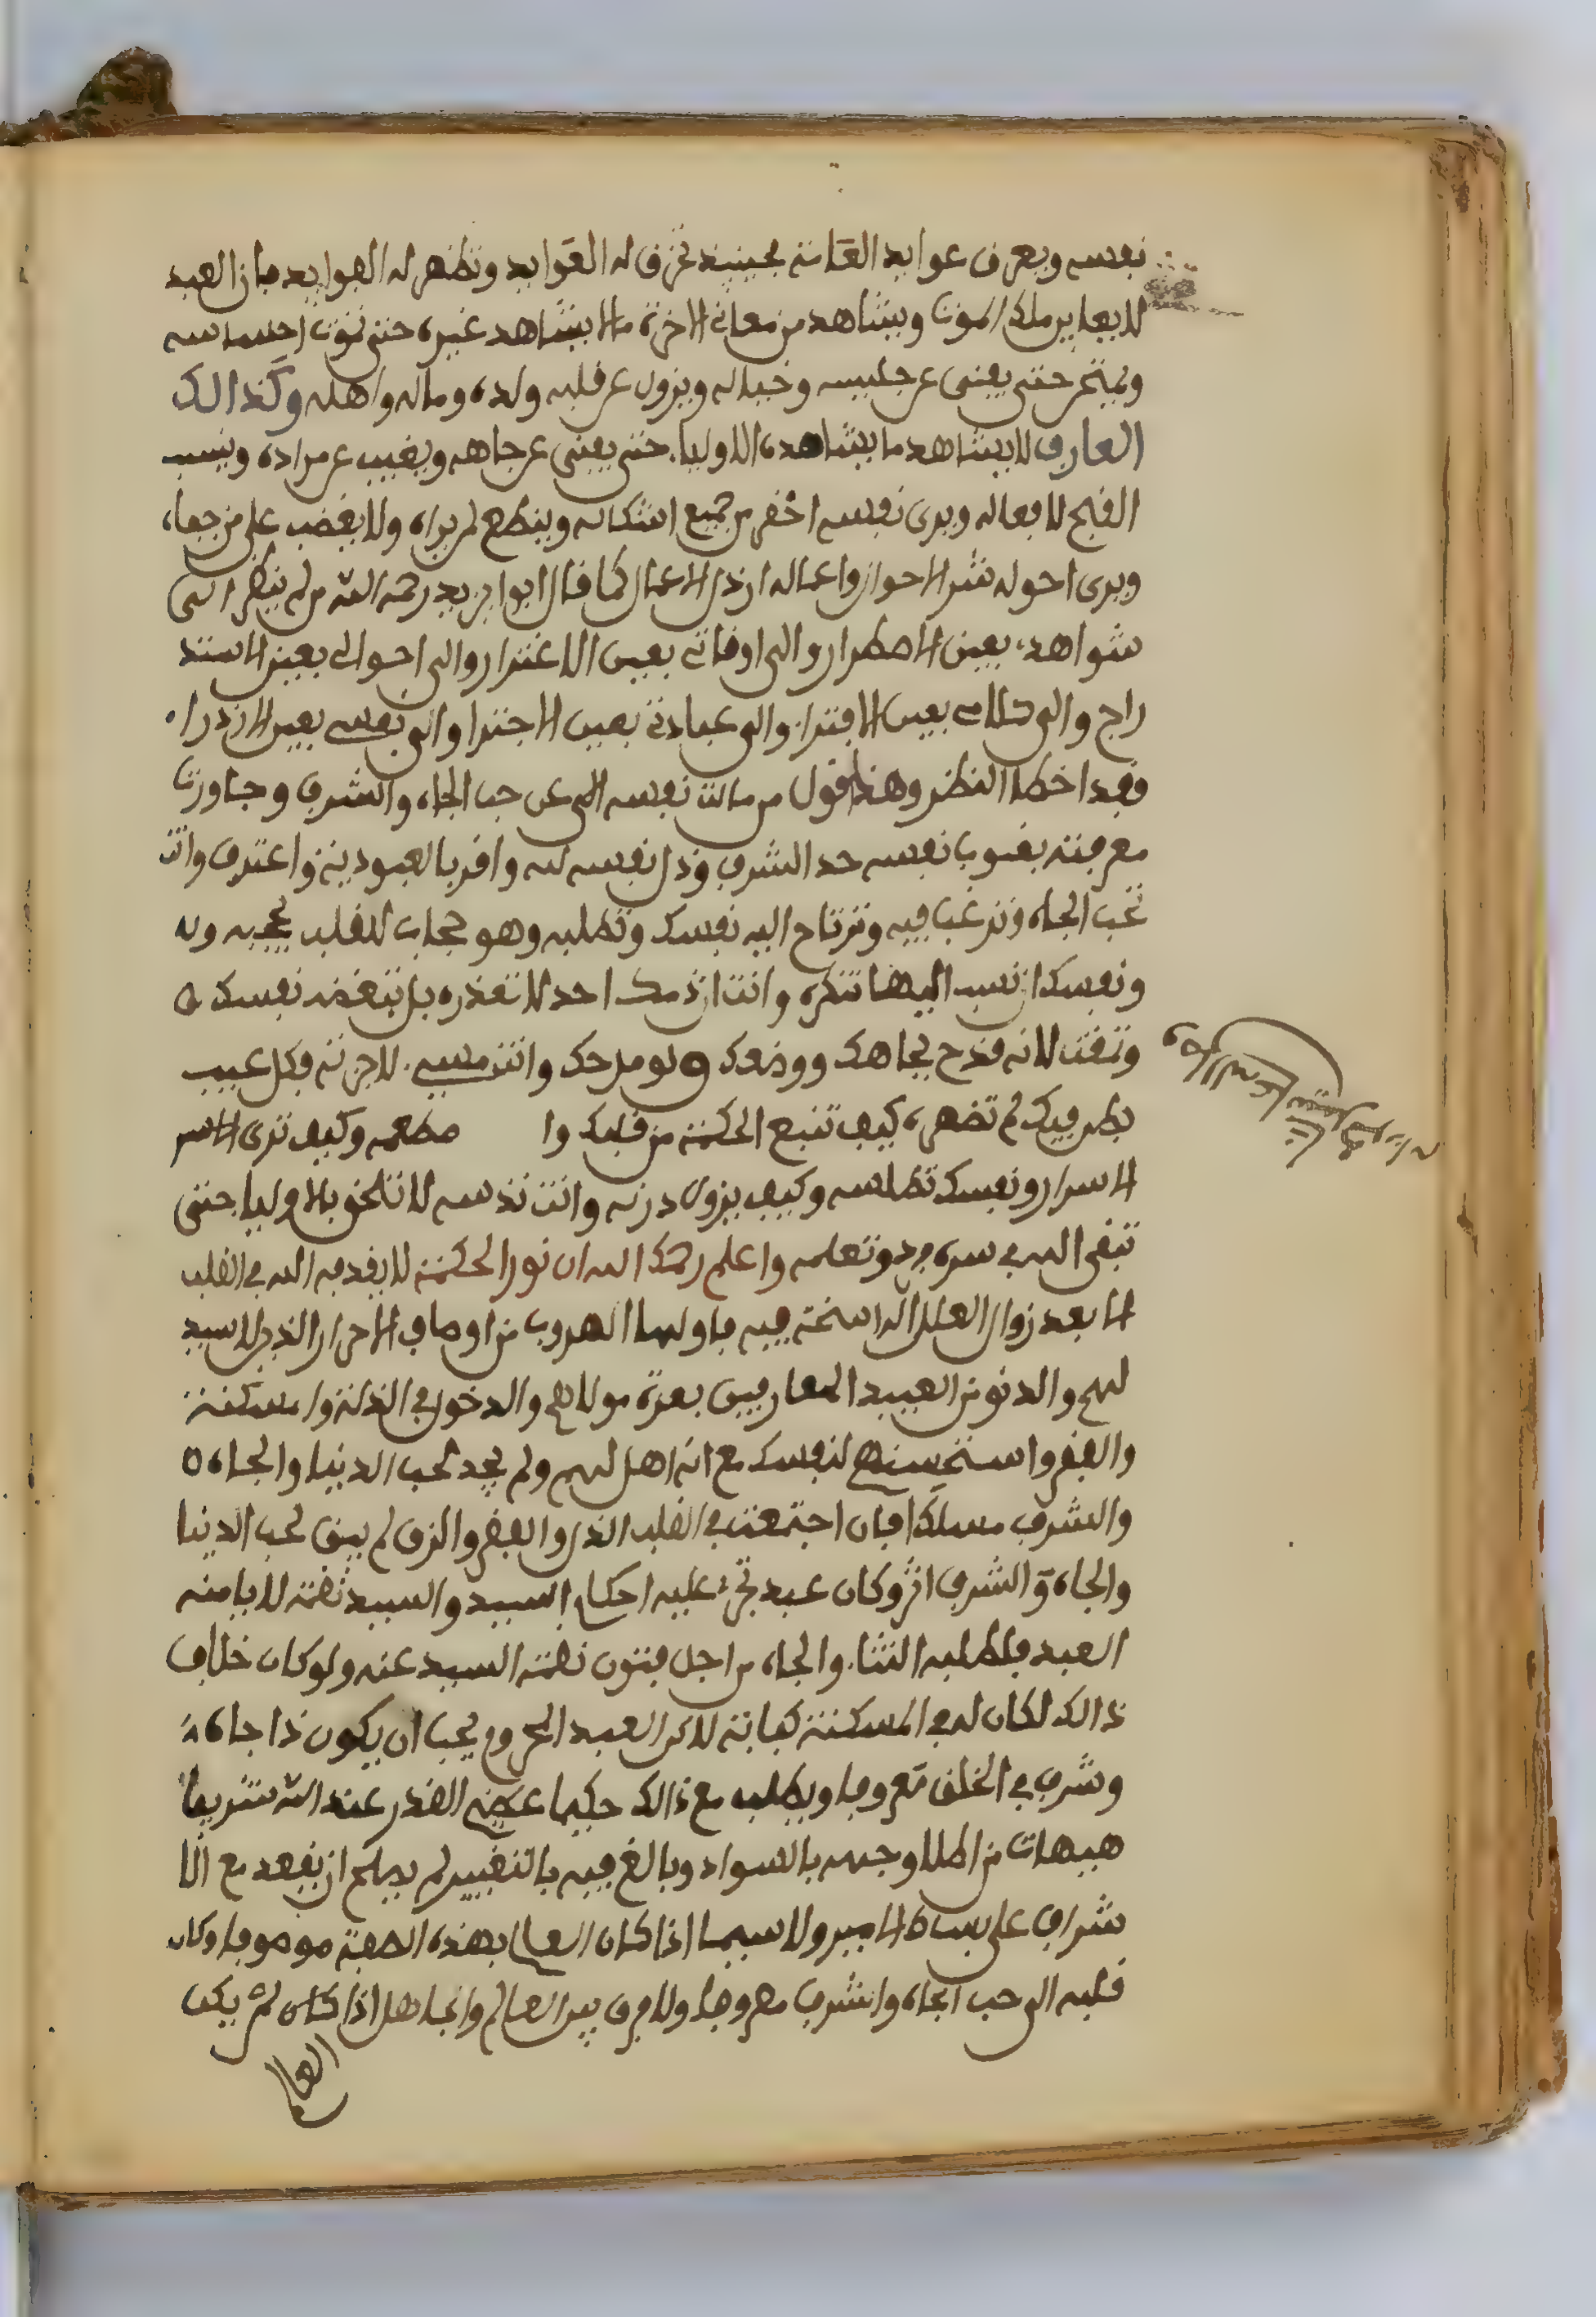 نفسه ويعرف عوايد العامة فحينيذ تخرق له العوايد وتظهر له الفوايد فان العبد
لا يعاين ملك الموت ويشاهد من معاني الاخرة ما لا يشاهد غيره حتى تموت احساسه
حتى يفنى عن جليسه وخياله ويزول عن قلبه ولده وماله واهله وكذالك
العارف لا يشاهد ما يشاهده الاوليا حتى يفنى عن جاهه ويغيب عن مراده وينسب
القبح لافعاله ويرى نفسه احقر من جميع اشكاله وينطع لمن يراه ولا يغضب على من جفاه
ويرى احوله شر الاحوال واعماله ارذل الاعمال كما قال ابوا يزيد رحمه الله من لم ينظر الى
شواهده بعين الاضطرار والى اوقاتي بعين الاغترار والى احوالي بعين الاستد
راج والى كلامي بعين الافترا والى عبادتي بعين الاجترا والى نفسي بعين الازدراء
فقد اخطا النظر وهذا قول من ماتت نفسه التي عن حب الجاه والشرف وجاوزت
معرفته بعيوب نفسه حد الشرف وذل نفسه لله واقر بالعبودية واعترف وانت
تحب الجاه وترغب فيه وترتاح اليه نفسك وتطلبه وهو حجاب للقلب يحجبه وله
ونفسك ان نسب اليها تنكره وانت ان ذمك احد لا تعذره بل تبغضه نفسك
وتمقت لانه قدح بجاهك ووضعك ولو مدحك وانت مسيء لاجرته فكل عيب
بطن فيك لم تضهره كيف تنبع الحكمة من قلبك وا مطعمه وكيف ترى الاسر
الاسرار ونفسك تطلسه وكيف يزول درنه وانت تدنسه لا تلحق بالاوليا حتى
تتقى الله في سره وتعلمه واعلم رحمك الله ان نور الحكمة لا يقدفه الله في القلب
الا بعد زوال العلل الراسخة فيه فاولها الهروب من اوصاف الاحرار الذين لا سيد
لهم والدنو من العبيد العارفين بعزة مولاهم والدخول في الذلة والمسكنة
والفقر واستحسنهم لنفسك مع انه اهل لهم ولم يجد لحب الدنيا والجاه
والشرف مسلكا فان اجتمعت في القلب الذل والفقر والرق لم يبق لحب الدنيا
والجاه والشرف اثر وكان عبد تجرى عليه احكام السيد والسيد نقمته لا يامنه
العبد فلطلبه الثنا والجاه من اجل فنون نقمة السيد عنه ولو كان خلاف
ذالك لكان له في المسكنة كفاية لاكن العبد المحروم يحب ان يكون ذا جاه
وشرف في الخلق معروفا ويطلب مع ذالك حكيما عضيم القدر عند الله شريفا
هيهات من اطلا وجهه بالسواد وبالغ فيه بالتغيير لم يصلح ان يقعد مع الا
شراف على بساط الامير ولا سيما اذا كان العالم بهذه الصفة موصوفا وكان
قلبه الى حب الجاه والشرف مصروفا ولا فرق بين العالم والجاهل اذا كان لم يكن
العالم